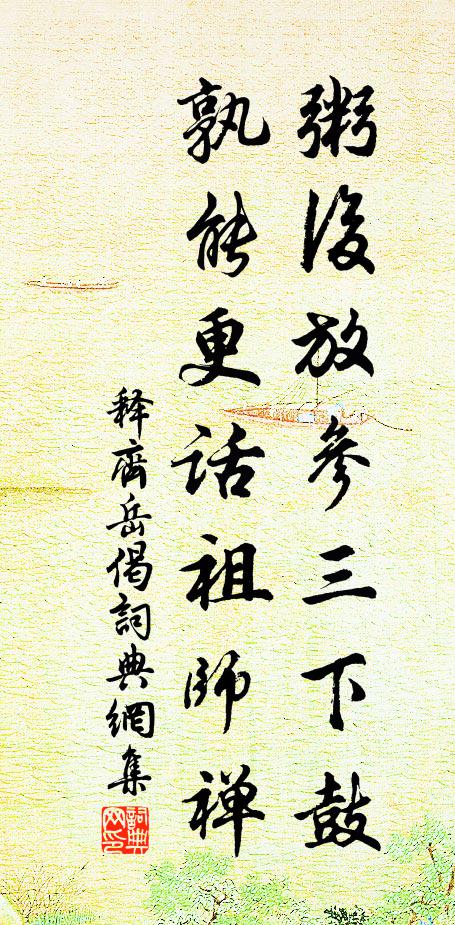 粥後放參三下鼓
孰能更话祖師禅
释齊岳偈詞典網集
詞典
网印